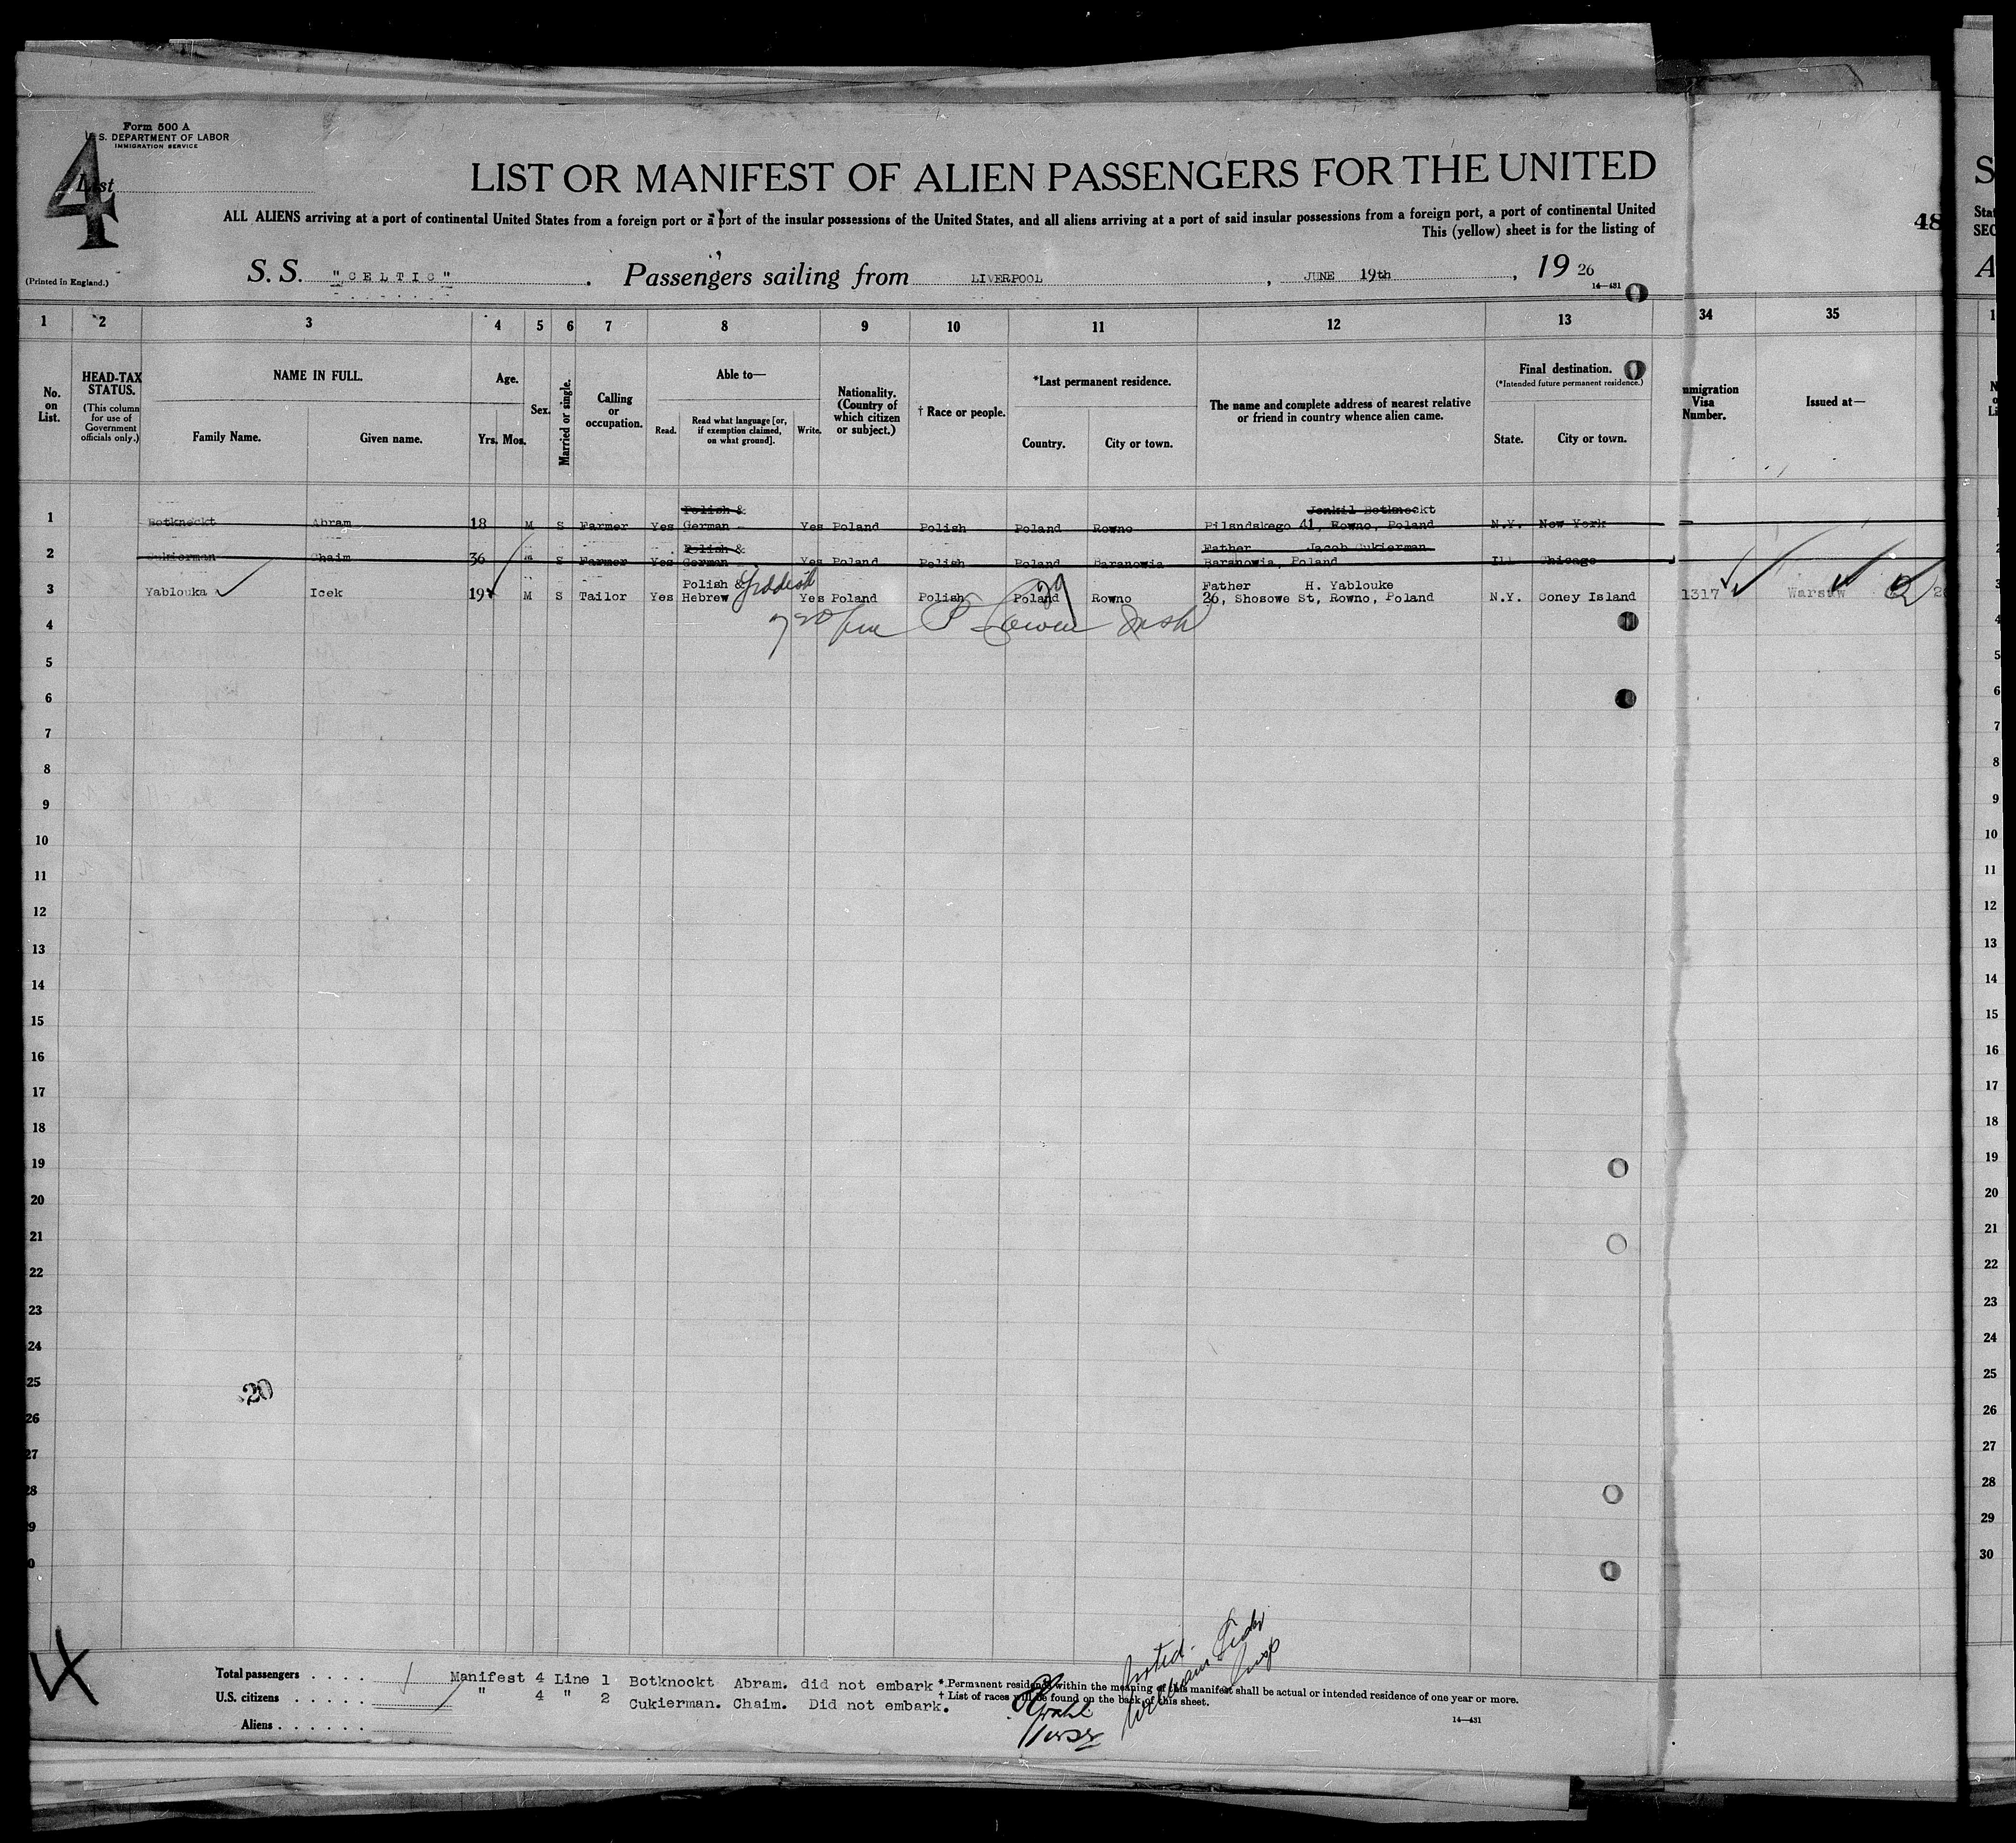 Form 500 A
S. DEPARTMENT OF LABOR
IMMIGRATION SERVICE
4
List
LIST OR MANIFEST OF ALIEN PASSENGERS FOR THE UNITED
S
ALL ALIENS arriving at a port of continental United States from a foreign port or a port of the insular possessions of the United States, and all aliens arriving at a port of said insular possessions from a foreign port, a port of continental United
This (yellow) sheet is for the listing of
48
Stat
SEC
(Printed in England.)
S. S. "CELTIC" . Passengers sailing from LIVERPOOL , JUNE 19th , 19 26
A
14—431
1 2 3 4 5 6 7 8 9 10 11 12 13 34 35
No. on List.
HEAD-TAX STATUS.
(This column for use of Government officials only.)
NAME IN FULL.
Family Name. Given name.
Age.
Yrs. Mos.
Sex.
Married or single.
Calling or occupation.
Able to—
Read. Read what language [or, if exemption claimed, on what ground]. Write.
Nationality. (Country of which citizen or subject.)
† Race or people.
*Last permanent residence.
Country. City or town.
The name and complete address of nearest relative or friend in country whence alien came.
Final destination.
(*Intended future permanent residence.)
State. City or town.
mmigration Visa Number.
Issued at—
Polish & Jenkil Botknockt
1 Botknockt Abram 18 M S Farmer Yes German Yes Poland Polish Poland Rowno Pilsndskego 41, Rowno, Poland N.Y. New York
Polish & Father Jacob Cukierman
2 Cukierman Chaim 36 M S Farmer Yes German Yes Poland Polish Poland Baranowia Baranowia, Poland Ill Chicago
Polish & Yiddish 29 Father H. Yablouke
3 Yablouka Icek 19 M S Tailor Yes Hebrew Yes Poland Polish Poland Rowno 26, Shosowe St, Rowno, Poland N.Y. Coney Island 1317 Warsaw
4
7 20 pm
5
6
7
8
9
10
11
12
13
14
15
16
17
18
19
20
21
22
23
24
25
20
26
27
28
29
30
Total passengers . . . .
U.S. citizens . . . . .
Aliens . . . . . .
Manifest 4 Line 1 Botknockt Abram. did not embark
" 4 " 2 Cukierman. Chaim. Did not embark.
* Permanent residence within the meaning of this manifest shall be actual or intended residence of one year or more.
† List of races will be found on the back of this sheet.
14—431